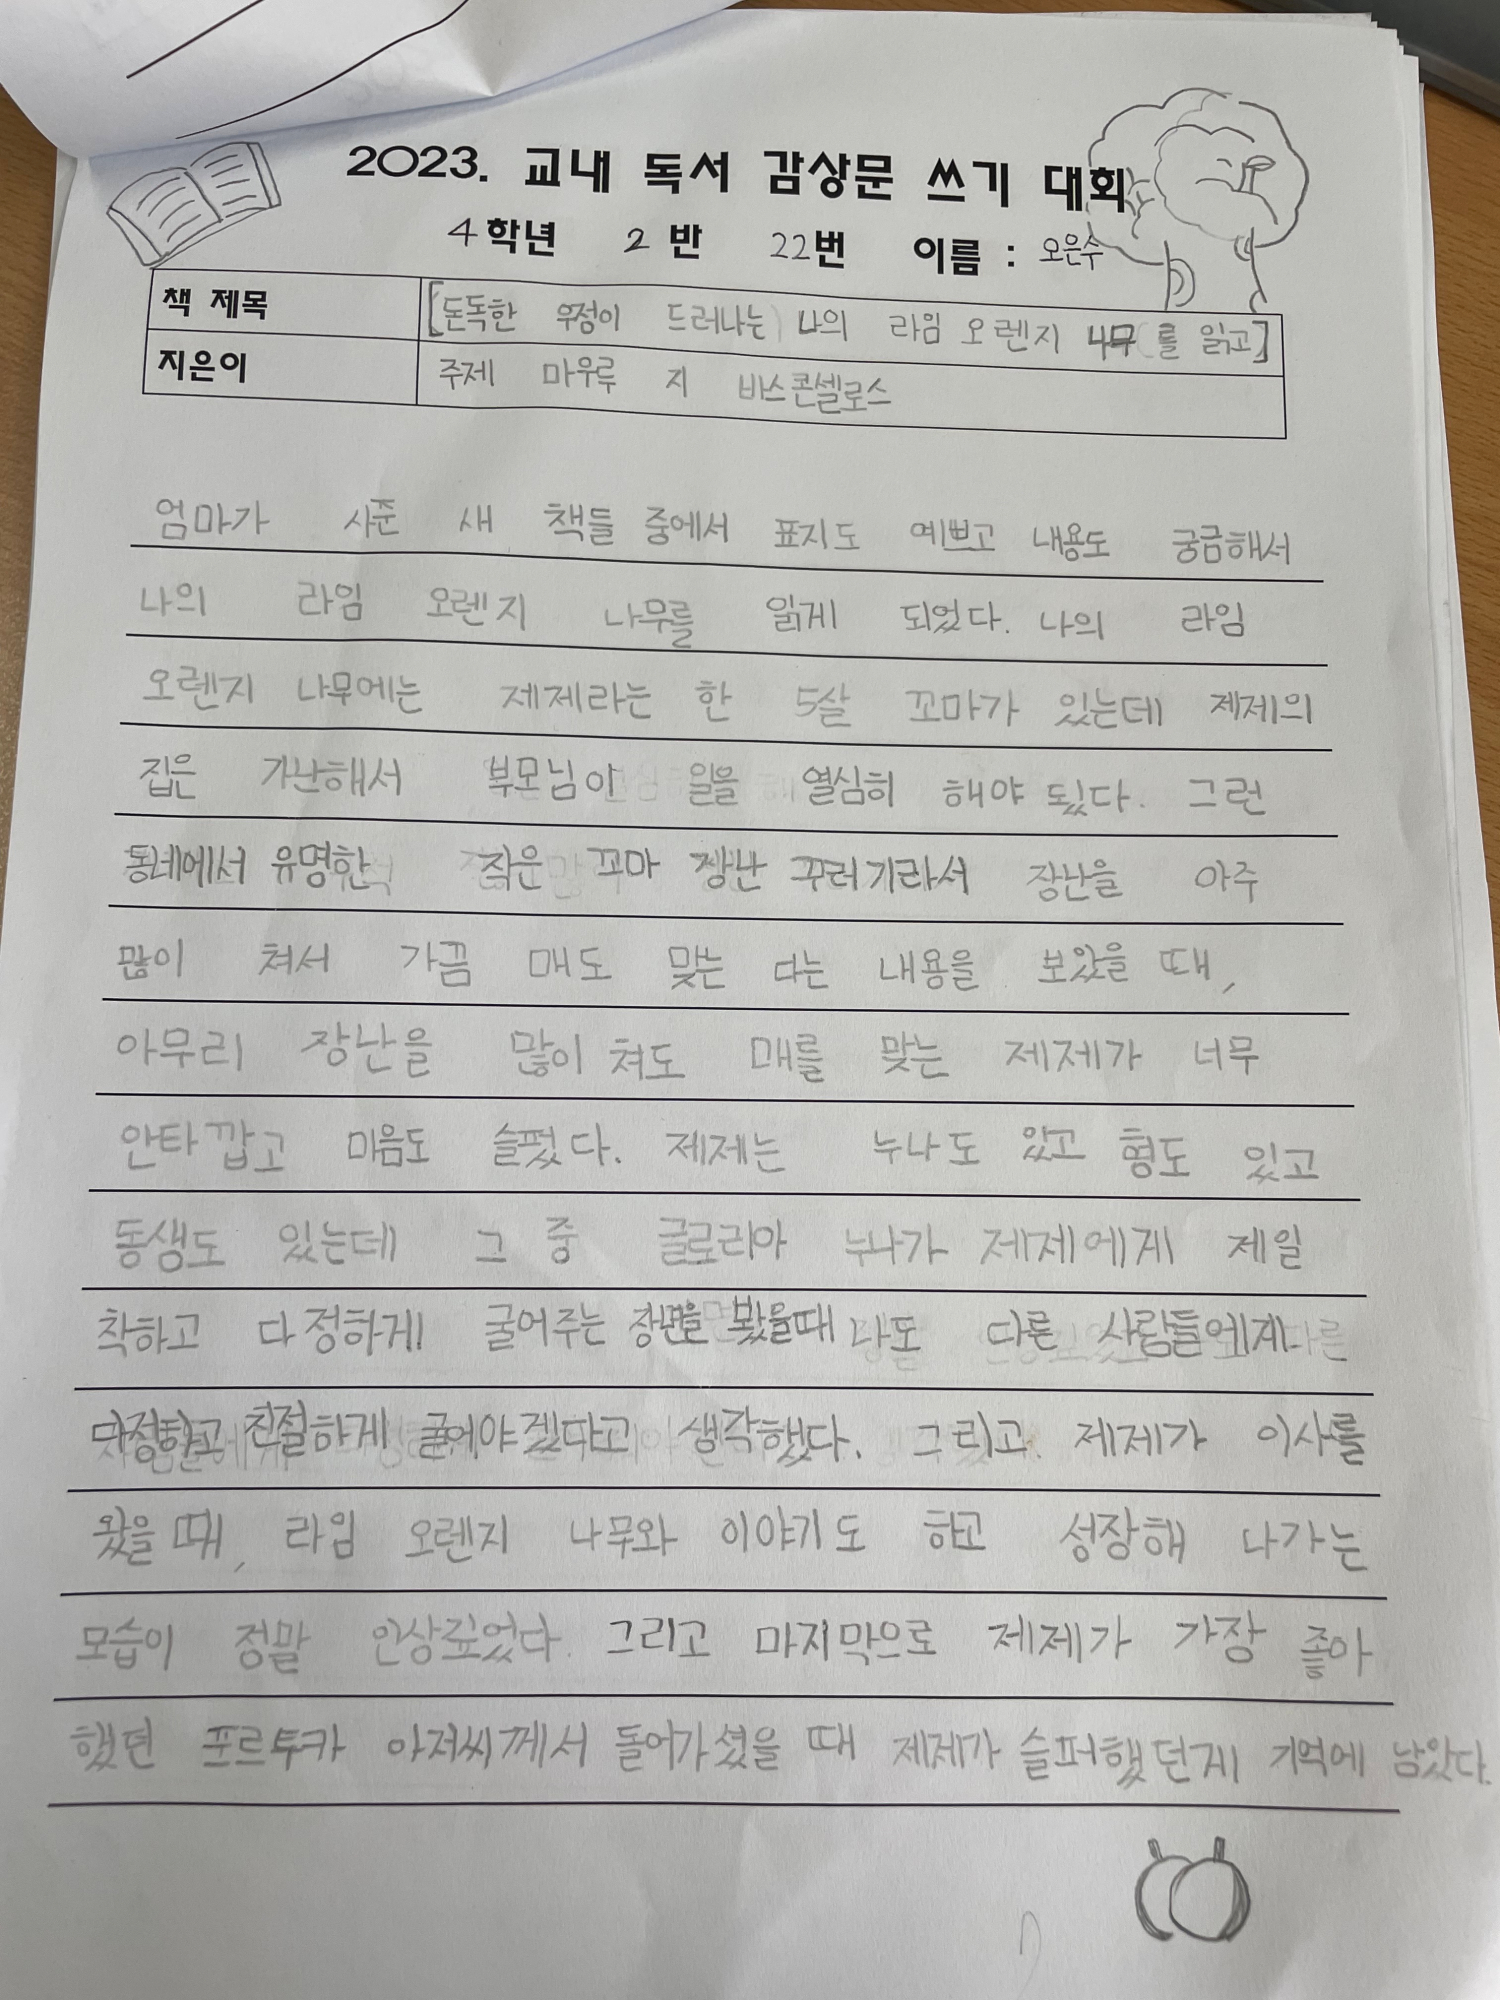 2023. 교내 독서 감상문 쓰기 대회
4학년 2반 22번 이름 : 오은수
책 제목 [돈독한 우정이 드러나는) 나의 라임 오렌지 나무를 읽고]
지은이 주제 마우루 지 바스콘셀로스
엄마가 사준 새 책들 중에서 표지도 예쁘고 내용도 궁금해서
나의 라임 오렌지 나무를 읽게 되었다. 나의 라임
오렌지 나무에는 제제라는 한 5살 꼬마가 있는데 제제의
집은 가난해서 부모님이 일을 열심히 해야 됬다. 그런
동네에서 유명한 작은 꼬마 장난 꾸러기라서 장난을 아주
많이 쳐서 가끔 매도 맞는 다는 내용을 보았을 때,
아무리 장난을 많이 쳐도 매를 맞는 제제가 너무
안타깝고 마음도 슬펐다. 제제는 누나도 있고 형도 있고
동생도 있는데 그 중 글로리아 누나가 제제에게 제일
착하고 다정하게 굴어주는 장면을 봤을때 나도 다른 사람들에게
다정하고 친절하게 굴어야겠다고 생각했다. 그리고 제제가 이사를
왔을 때, 라임 오렌지 나무와 이야기도 하고 성장해 나가는
모습이 정말 인상깊었다. 그리고 마지막으로 제제가 가장 좋아
했던 포르투카 아저씨께서 돌아가셨을 때 제제가 슬퍼했던게 기억에 남았다.